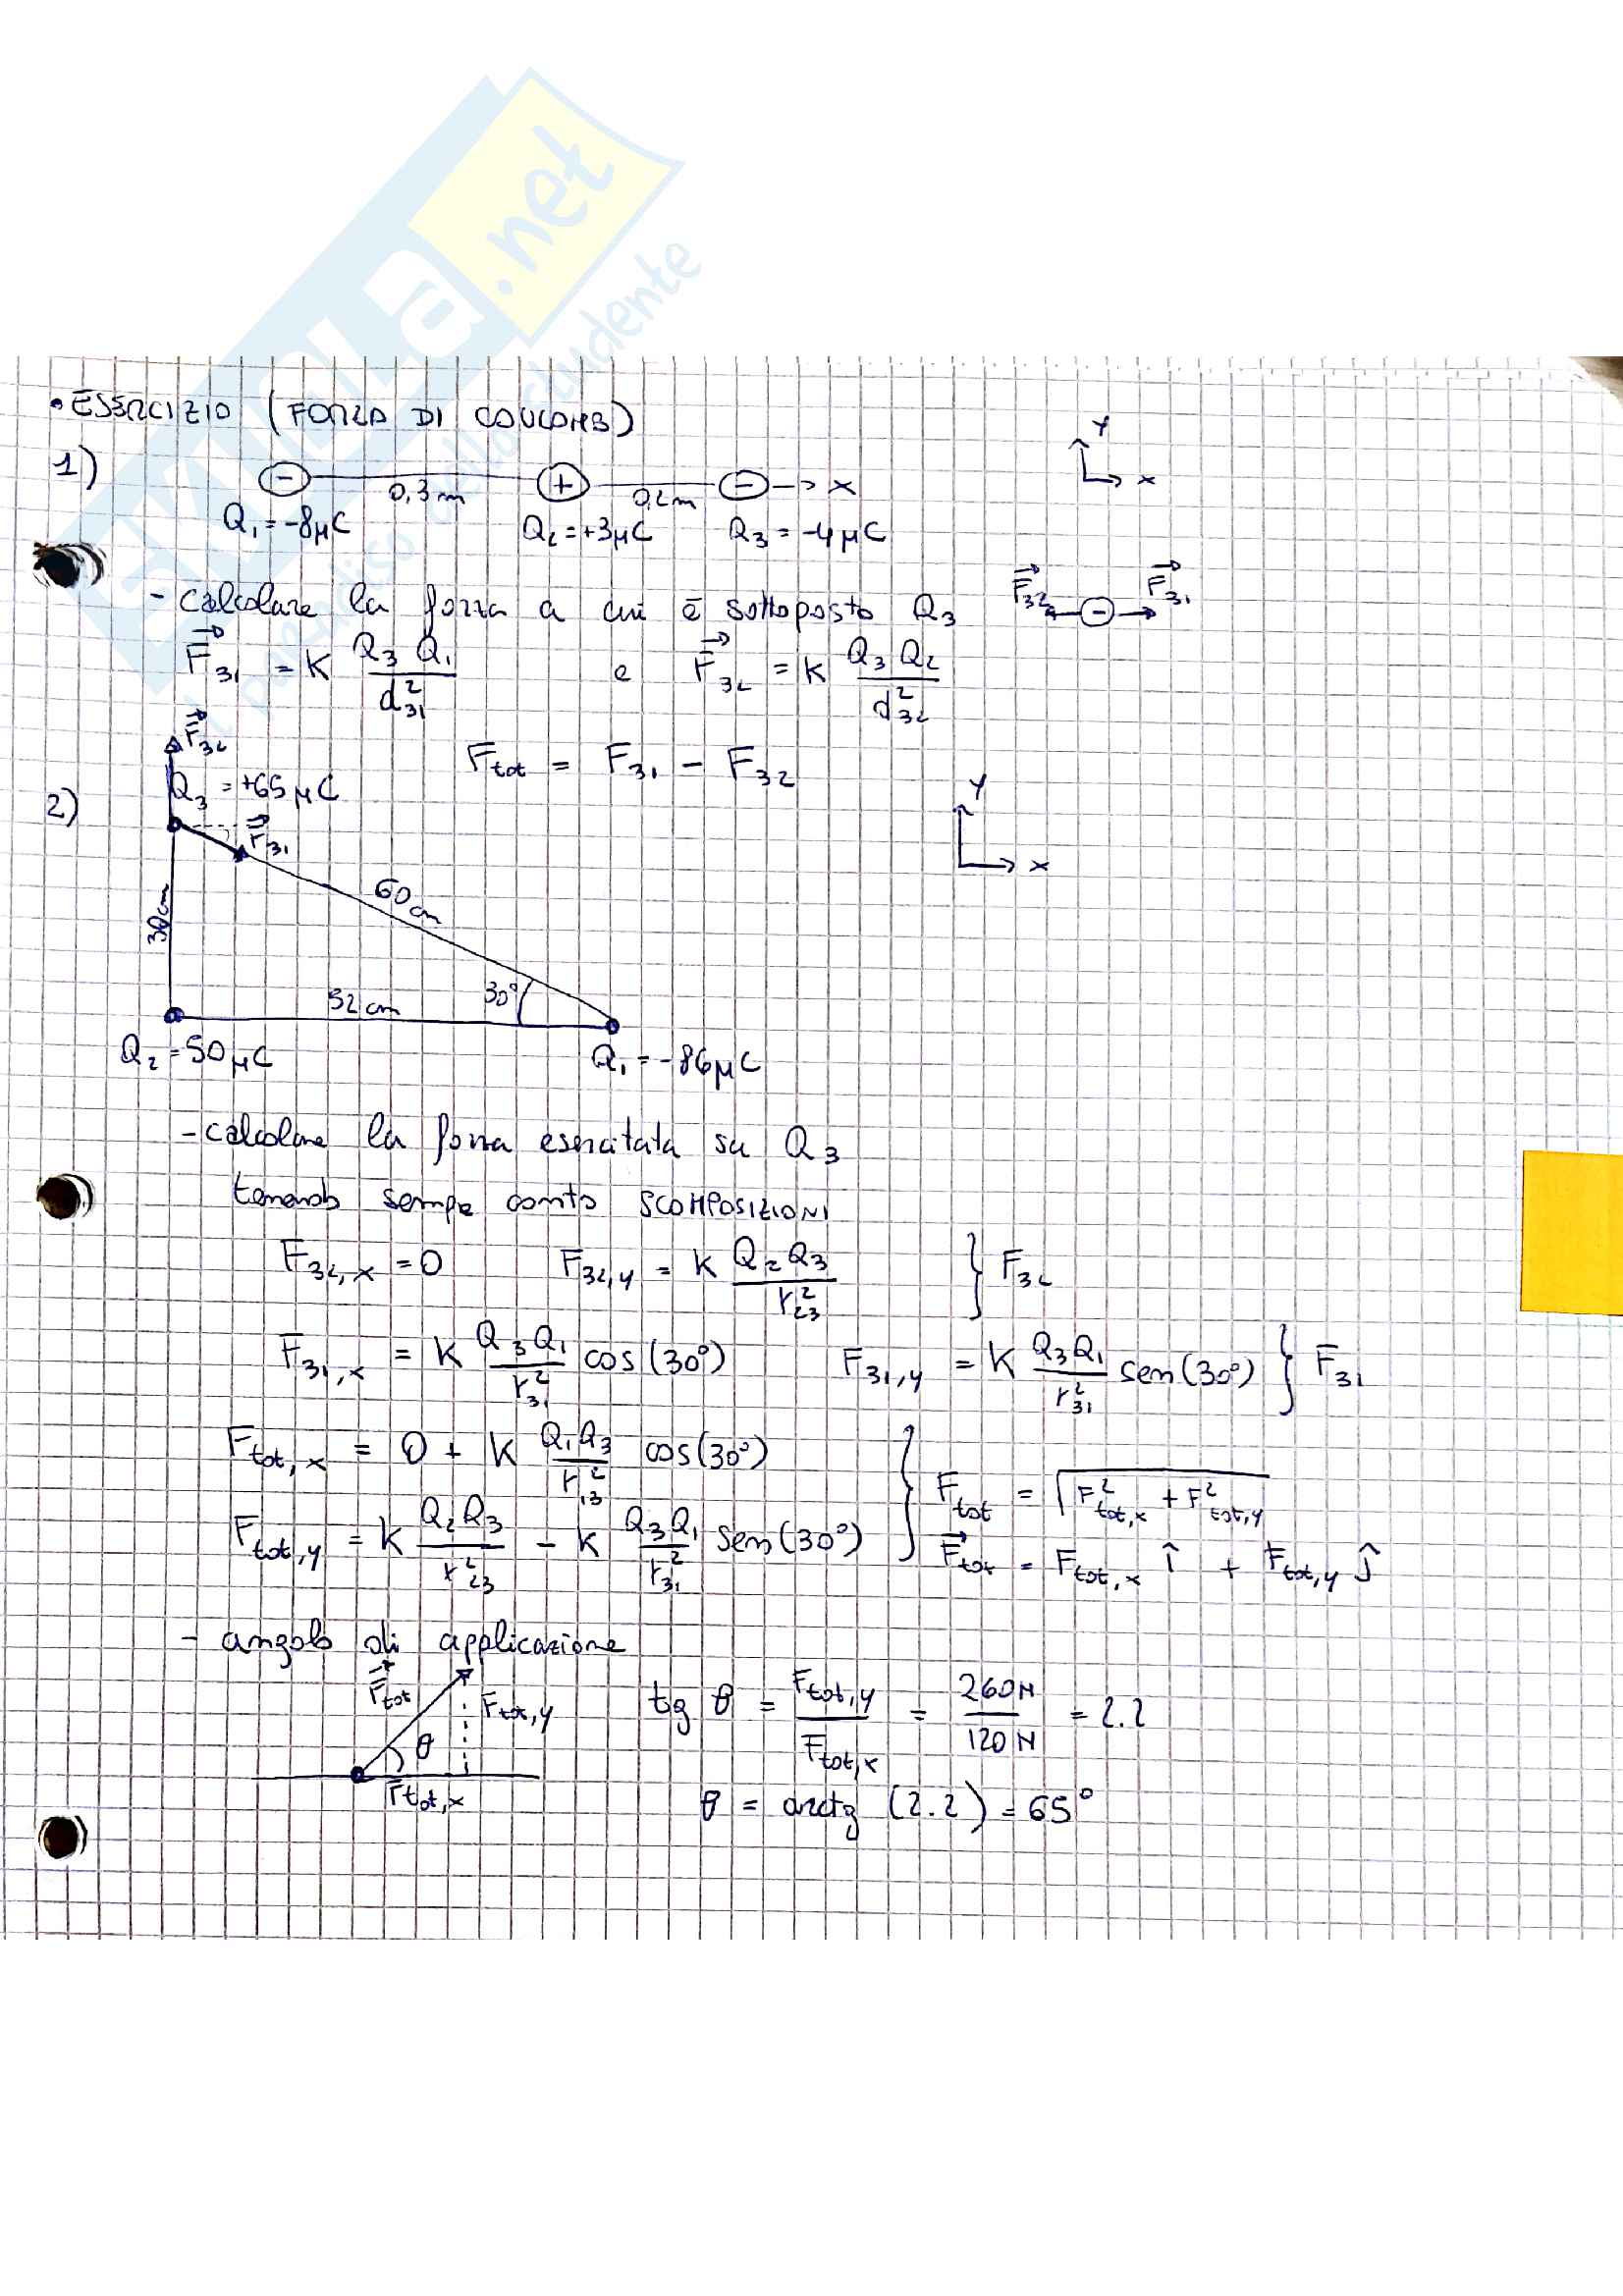 SKUOLA.net
il paradiso dello studente
• ESERCIZIO (FORZA DI COULOMB)
Y
x
1)
- 0,3 m + 0,2 m - → x
Q₁ = -8μC Q₂ = +3μC Q₃ = -4μC
F₃₂ - F₃₁
- calcolare la forza a cui è sottoposto Q₃
F₃₁ = K Q₃ Q₁ / d²₃₁ e F₃₂ = K Q₃ Q₂ / d²₃₂
F₃₂
Ftot = F₃₁ - F₃₂
2)
Q₃ = +65 μC
F₃₁
Y
x
60 cm
30 cm
52 cm
30°
Q₂ = 50 μC
Q₁ = -86 μC
- calcolare la forza esercitata su Q₃
tenendo sempre conto SCOMPOSIZIONI
F₃₂,x = 0 F₃₂,y = K Q₂ Q₃ / r²₂₃ } F₃₂
F₃₁,x = K Q₃ Q₁ / r²₃₁ cos(30°) F₃₁,y = K Q₃ Q₁ / r²₃₁ sen(30°) } F₃₁
Ftot,x = 0 + K Q₁ Q₃ / r²₁₃ cos(30°)
Ftot = √(F²tot,x + F²tot,y)
Ftot,y = K Q₂ Q₃ / r²₂₃ - K Q₃ Q₁ / r²₃₁ sen(30°)
Ftot = Ftot,x î + Ftot,y ĵ
- angolo di applicazione
Ftot
Ftot,y
θ
Ftot,x
tg θ = Ftot,y / Ftot,x = 260N / 120N = 2.2
θ = arctg (2.2) = 65°